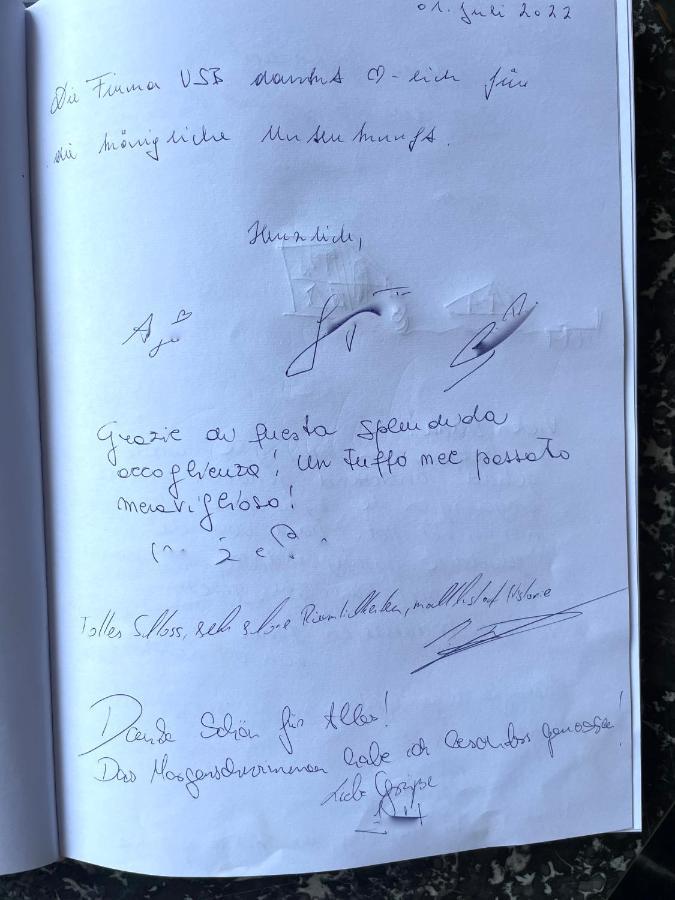 01. Juli 2022
Die Firma VSB dankt ♡-lich für
die königliche Unterkunft.
Herzlich,
Grazie di questa splendida
accoglienza! Un tuffo nel passato
meraviglioso!
Tolles Schloss, sehr schöne Räumlichkeiten, macht Lust auf Historie
Danke Schön für Alles!
Das Morgenschwimmen habe ich besonders genossen!
Liebe Grüsse